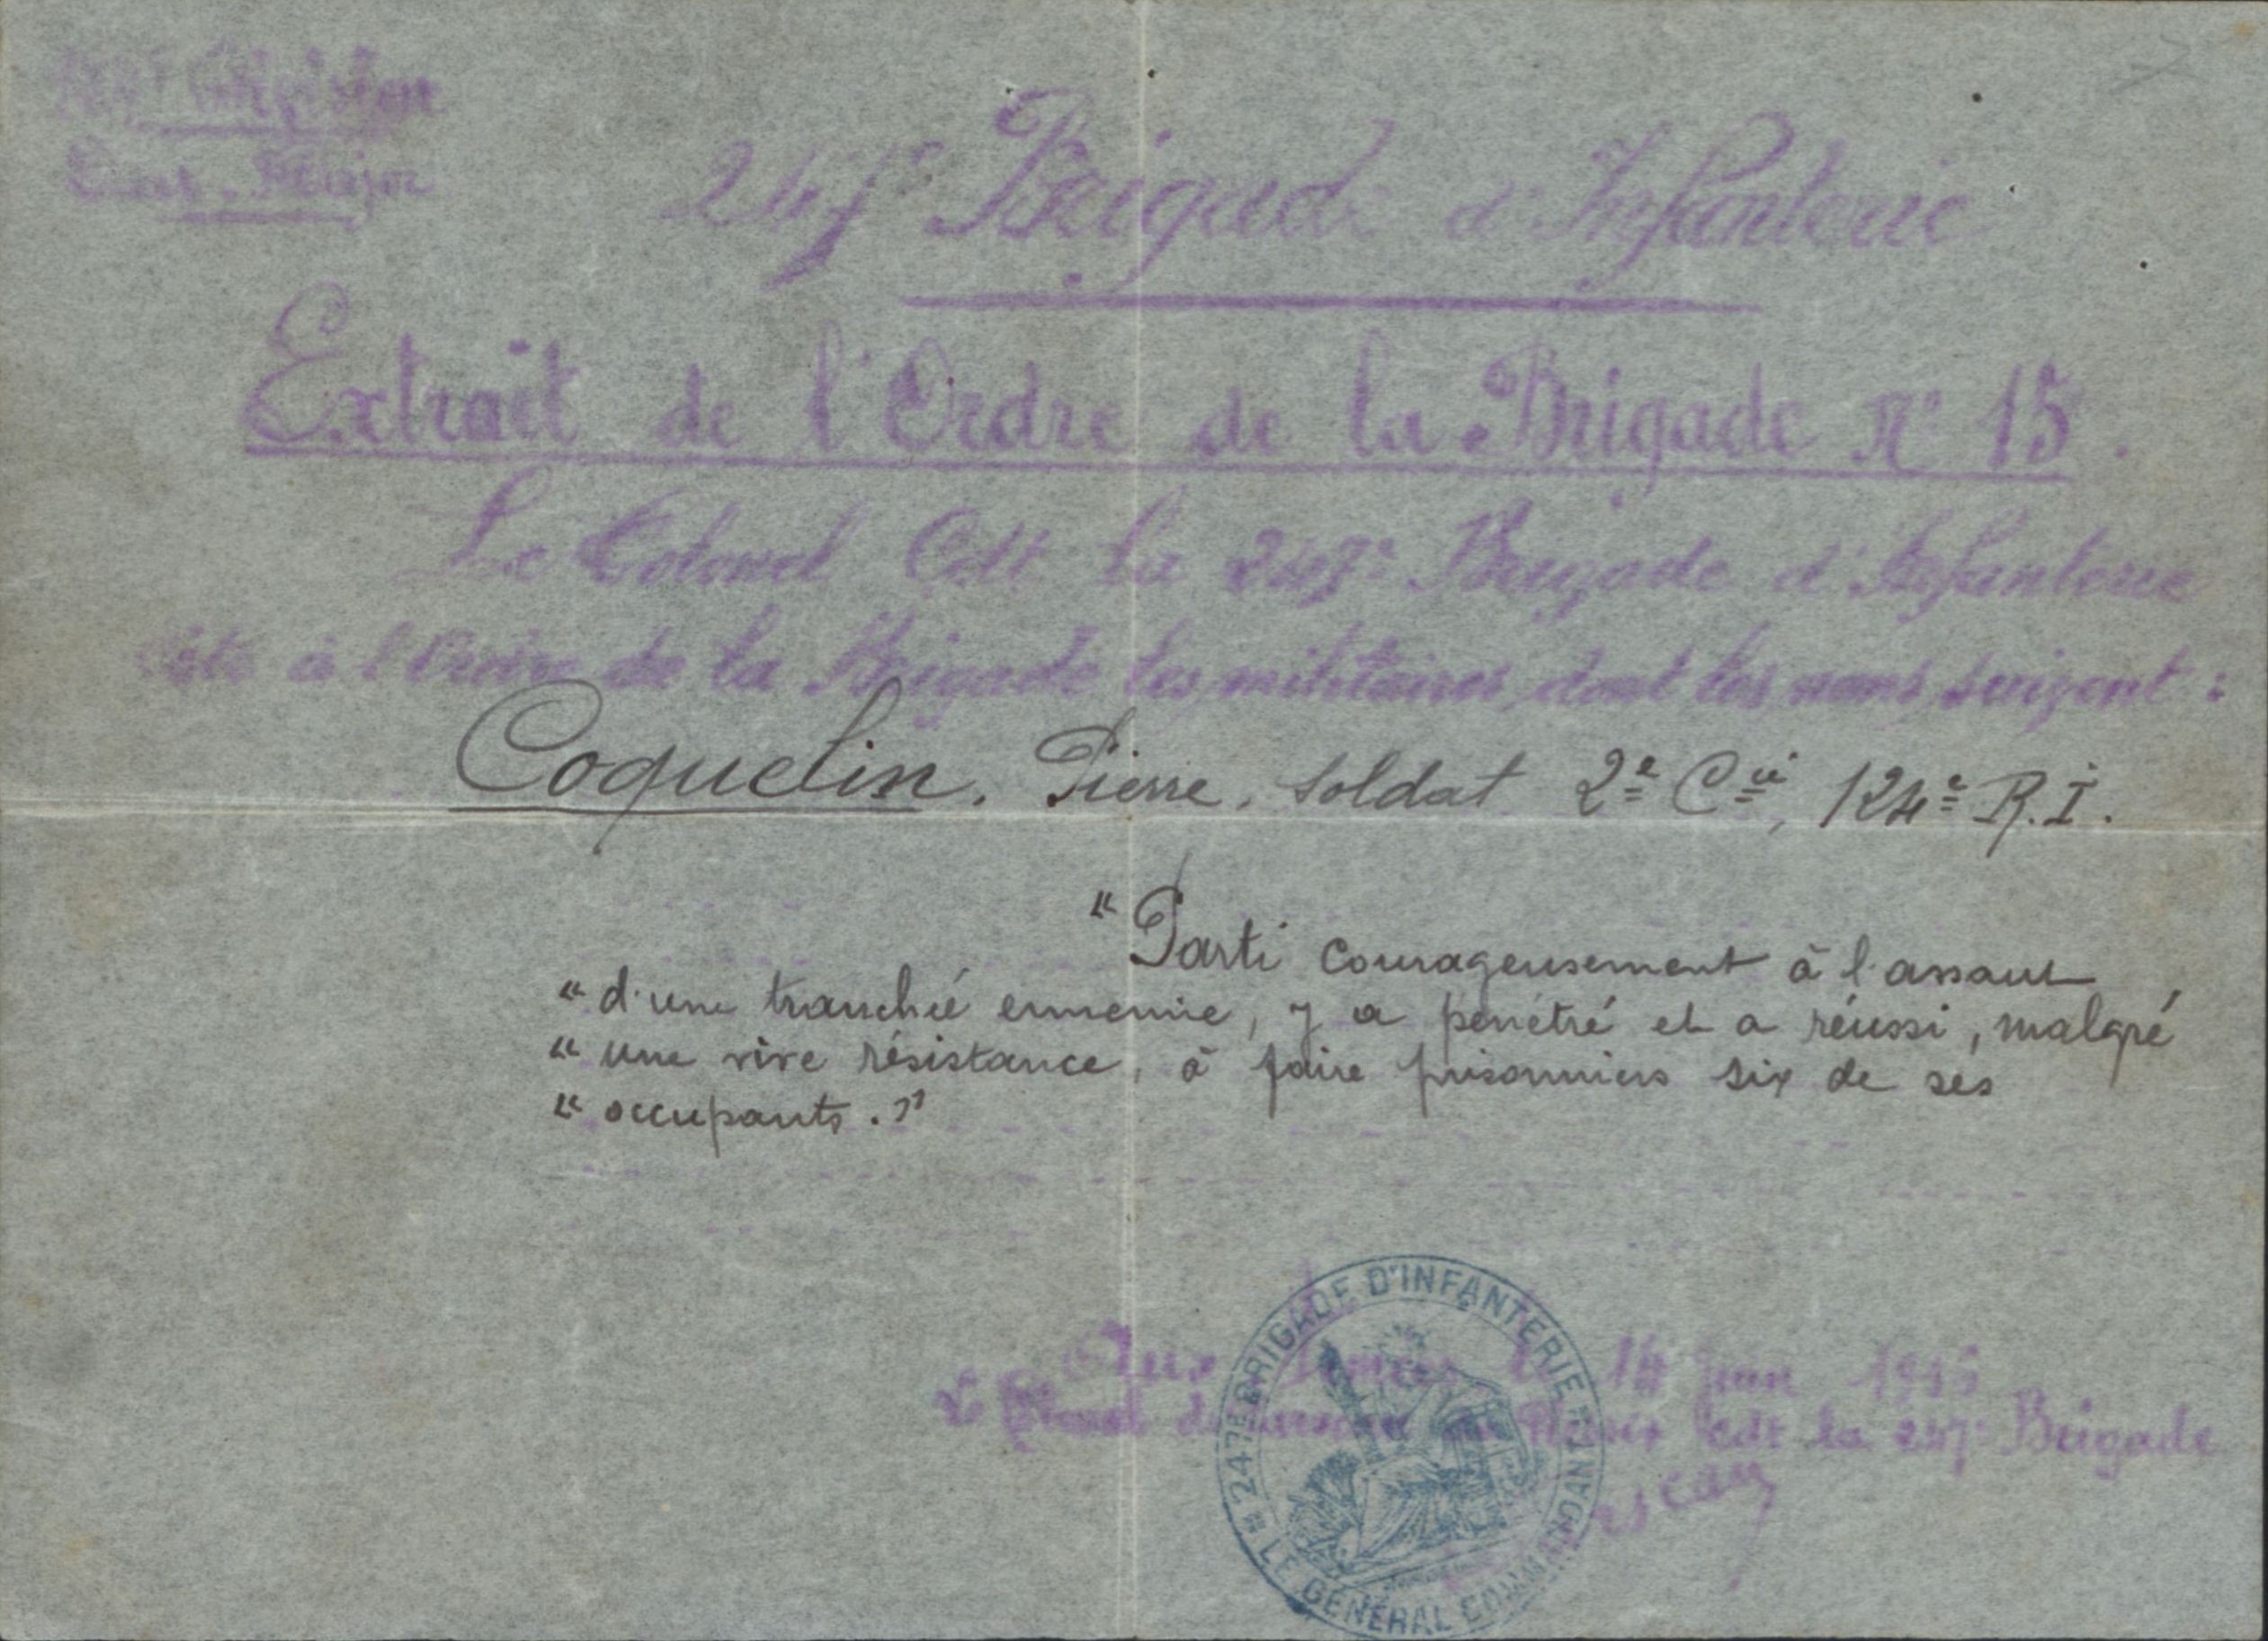 124e Division
Etat-Major
247e Brigade d'Infanterie
Extrait de l'Ordre de la Brigade N° 15.
Le Colonel Cdt la 247e Brigade d'Infanterie
Cite à l'Ordre de la Brigade les militaires dont les noms suivent :
Coquelin. Pierre. soldat 2e Cie, 124e R.I.
" Parti courageusement à l'assaut
" d'une tranchée ennemie, y a pénétré et a réussi, malgré
" une vive résistance, à faire prisonniers six de ses
" occupants. "
Aux Armées, le 14 juin
Le Colonel Cdt la 247e Brigade
247E BRIGADE D'INFANTERIE
LE GÉNÉRAL COMMANDANT